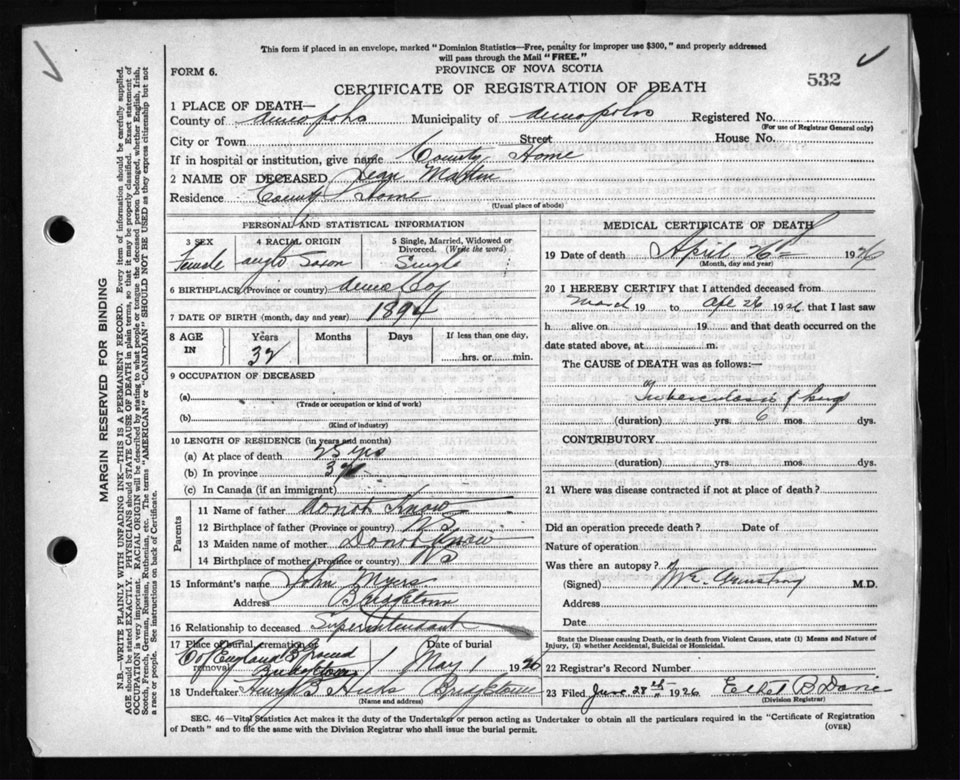 This form if placed in an envelope, marked "Dominion Statistics—Free, penalty for improper use $300," and properly addressed
will pass through the Mail "FREE."
FORM 6.
PROVINCE OF NOVA SCOTIA
532
CERTIFICATE OF REGISTRATION OF DEATH
1 PLACE OF DEATH—
County of Municipality of Registered No.
(For use of Registrar General only)
City or Town Street House No.
If in hospital or institution, give name County Home
2 NAME OF DECEASED Martin
Residence County Home
(Usual place of abode)
PERSONAL AND STATISTICAL INFORMATION
3 SEX
Female
4 RACIAL ORIGIN
anglo Saxon
5 Single, Married, Widowed or
Divorced. (Write the word)
Single
6 BIRTHPLACE (Province or country)
7 DATE OF BIRTH (month, day and year) 1894
8 AGE
IN
Years
32
Months
Days
If less than one day,
hrs. or min.
9 OCCUPATION OF DECEASED
(a)
(Trade or occupation or kind of work)
(b)
(Kind of industry)
10 LENGTH OF RESIDENCE (in years and months)
(a) At place of death 25 yrs
(b) In province
(c) In Canada (if an immigrant)
Parents
11 Name of father do not Know
12 Birthplace of father (Province or country) N S
13 Maiden name of mother Do not Know
14 Birthplace of mother (Province or country) N S
15 Informant's name John Myers
Address Bridgetown
16 Relationship to deceased Superintendant
17 Place of burial, cremation or
removal
Of England Ground
Bridgetown
Date of burial
May 1 1926
18 Undertaker Henry B Hicks Bridgetown
(Name and address)
MEDICAL CERTIFICATE OF DEATH
19 Date of death April 26 1926
(Month, day and year)
20 I HEREBY CERTIFY that I attended deceased from
March 19 to Apl 26 1926 that I last saw
h alive on 19 and that death occurred on
date stated above, at m.
The CAUSE of DEATH was as follows:—
Tuberculosis of lung
(duration) yrs. 6 mos. dys.
CONTRIBUTORY
(duration) yrs. mos. dys.
21 Where was disease contracted if not at place of death?
Did an operation precede death? Date of
Nature of operation
Was there an autopsy?
(Signed) Armstrong M.D.
Address
Date
State the Disease causing Death, or in death from Violent Causes, state (1) Means and Nature of
Injury, (2) whether Accidental, Suicidal or Homicidal.
22 Registrar's Record Number
23 Filed June 1926 Ethel B
(Division Registrar)
SEC. 46—Vital Statistics Act makes it the duty of the Undertaker or person acting as Undertaker to obtain all the particulars required in the "Certificate of Registration
of Death" and to file the same with the Division Registrar who shall issue the burial permit.
(OVER)
MARGIN RESERVED FOR BINDING
N.B.—WRITE PLAINLY WITH UNFADING INK—THIS IS A PERMANENT RECORD. Every item of information should be carefully supplied.
AGE should be stated EXACTLY. PHYSICIANS should STATE CAUSE OF DEATH in plain terms, so that it may be properly classified. Exact statement of
OCCUPATION is very important. RACIAL ORIGIN will be described by stating to what people or tongue the deceased person belonged, whether English, Irish,
Scotch, French, German, Russian, Ruthenian, etc. The terms "AMERICAN" or "CANADIAN" SHOULD NOT BE USED as they express citizenship but not
a race or people. See instructions on back of Certificate.